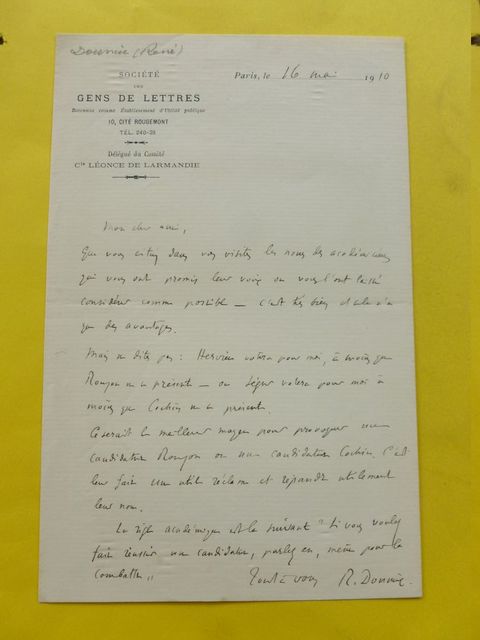 Doumic (René)
SOCIÉTÉ
DES
GENS DE LETTRES
Reconnue comme Établissement d'Utilité publique
10, CITÉ ROUGEMONT
TÉL. 240-28
Délégué du Comité
Cte LÉONCE DE LARMANDIE
Paris, le 16 mai 1910
Mon cher ami,
Que vous citiez dans vos visites les noms des académiciens
qui vous ont promis leur voix ou vous l'ont laissé
considérer comme possible — c'est très bien et cela n'a
que des avantages.
Mais ne dites pas : Hervieu votera pour moi, à moins que
Roujon ne se présente — ou Ségur votera pour moi à
moins que Cochin ne se présente.
Ce serait le meilleur moyen pour provoquer une
candidature Roujon ou une candidature Cochin. C'est
leur faire une utile réclame et répandre utilement
leur nom.
La règle académique est la suivante "Si vous voulez
faire réussir un candidat, parlez en, même pour le
combattre"
Tout à vous R. Doumic.